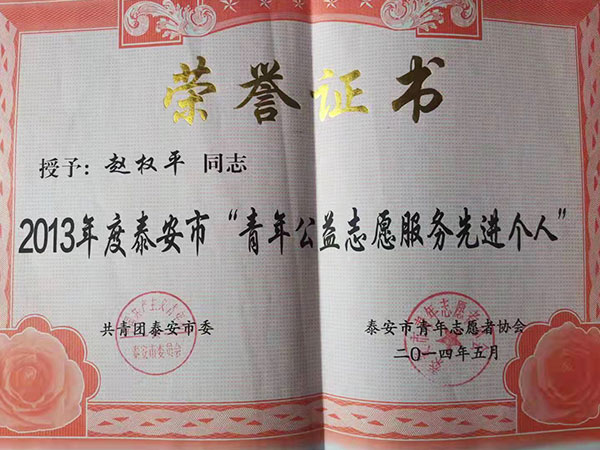 荣誉证书
授予：赵权平 同志
2013年度泰安市“青年公益志愿服务先进个人”
共青团泰安市委
泰安市青年志愿者协会
二〇一四年五月